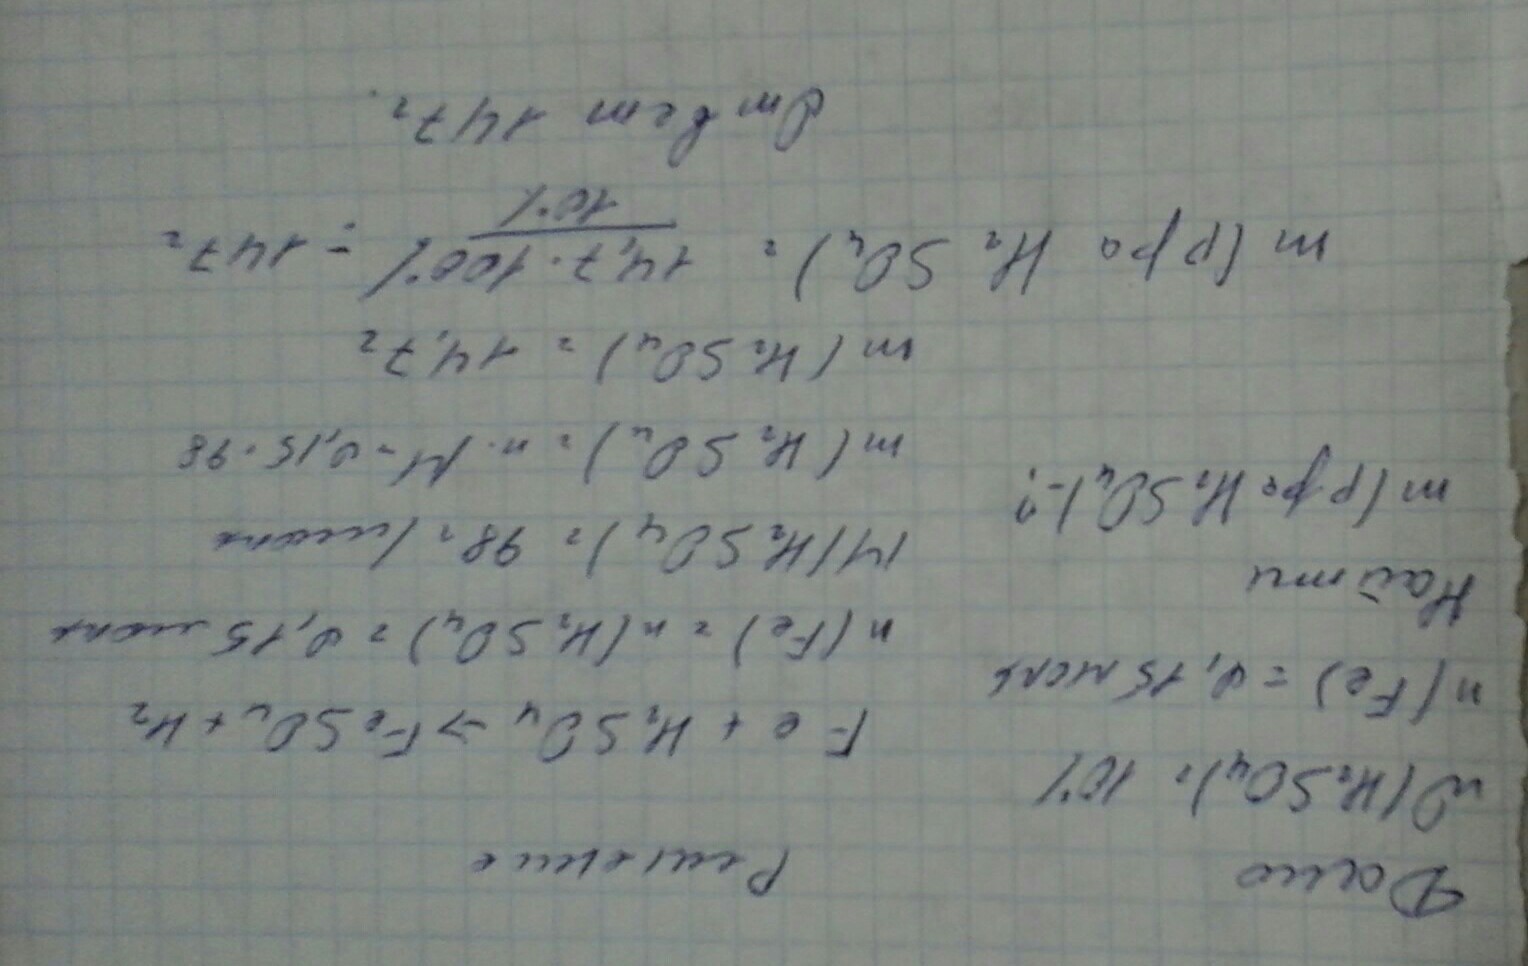 Дано
W(H₂SO₄) = 10%
n(Fe) = 0,15 моль
Найти
m(р-ра H₂SO₄)-?
Решение
Fe + H₂SO₄ → FeSO₄ + H₂
n(Fe) = n(H₂SO₄) = 0,15 моль
M(H₂SO₄) = 98 г/моль
m(H₂SO₄) = n·M = 0,15·98
m(H₂SO₄) = 14,7г
m(р-ра H₂SO₄) = 14,7·100% / 10% = 147г
Ответ 147г.